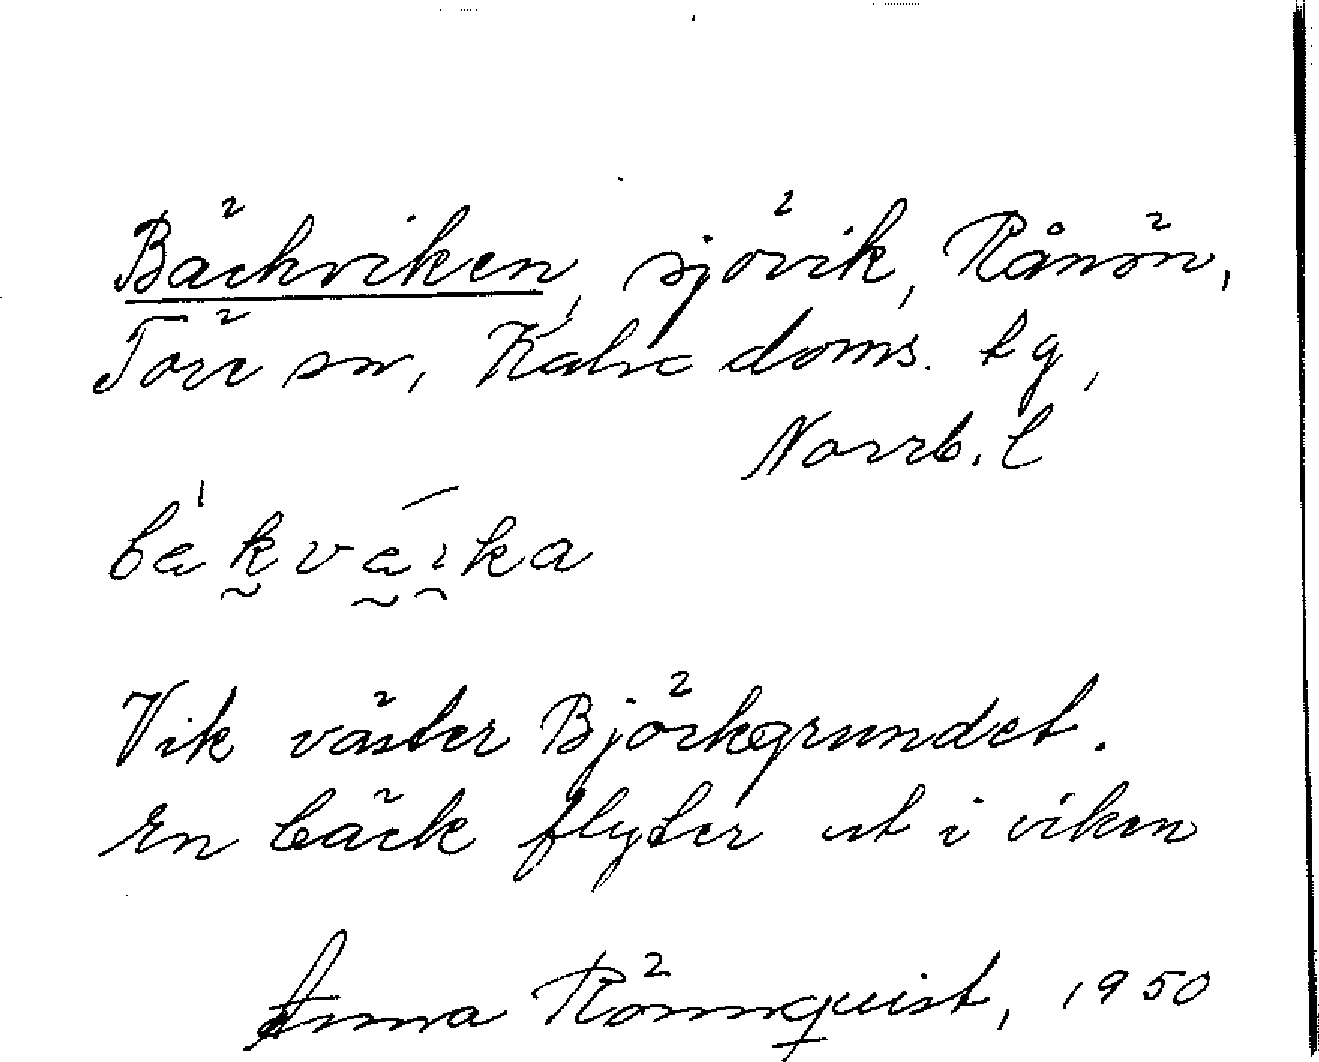 Bäckviken, sjövik, Rånön,
Töre sn, Kalix doms. tg,
Norrb. l
Vik väster Björkgrundet.
En bäck flyter ut i viken
Anna Rönnquist, 1950